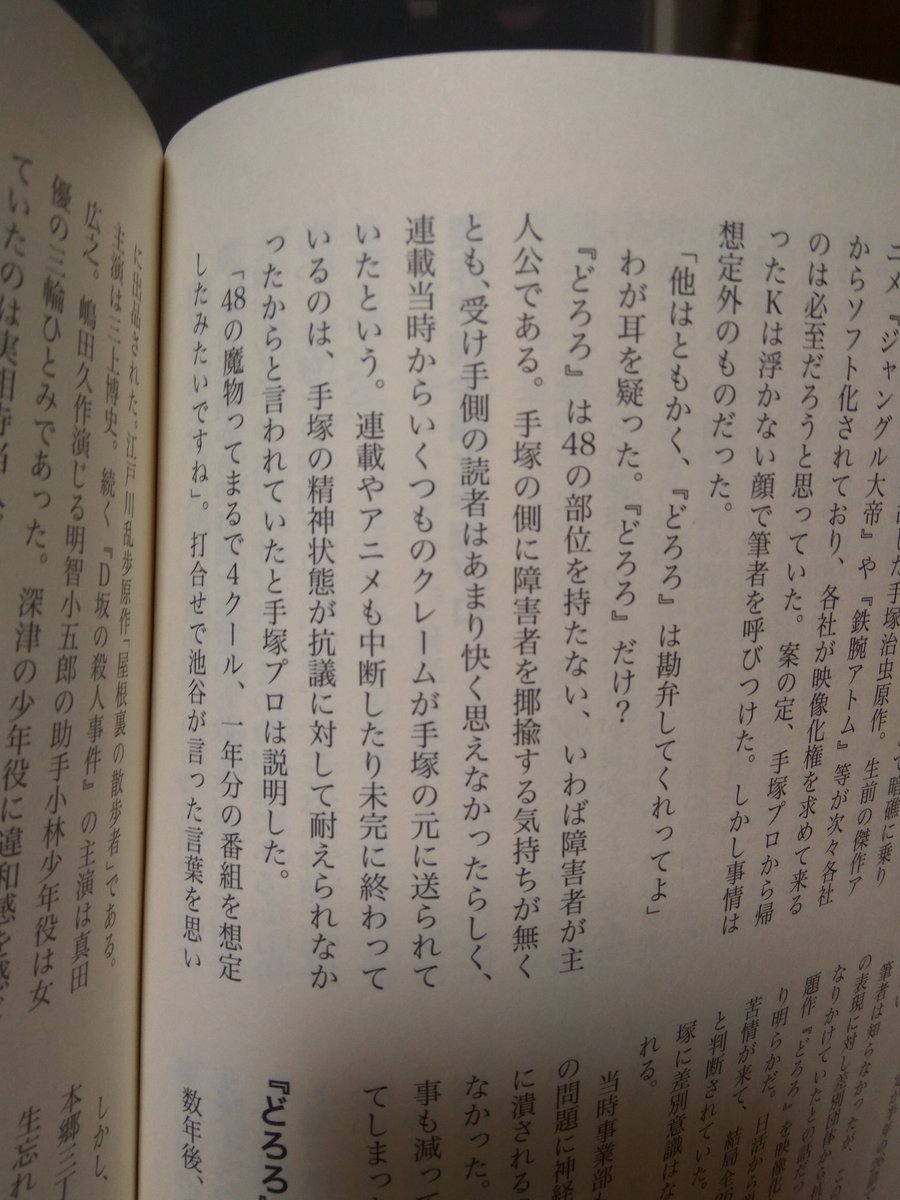 ニメ『ジャングル大帝』や『鉄腕アトム』等が次々各社
からソフト化されており、各社が映像化権を求めて来る
のは必至だろうと思っていた。案の定、手塚プロから帰
ったKは浮かない顔で筆者を呼びつけた。しかし事情は
想定外のものだった。
「他はともかく、『どろろ』は勘弁してくれってよ」
わが耳を疑った。『どろろ』だけ?
『どろろ』は48の部位を持たない、いわば障害者が主
人公である。手塚の側に障害者を揶揄する気持ちが無く
とも、受け手側の読者はあまり快く思えなかったらしく、
連載当時からいくつものクレームが手塚の元に送られて
いたという。連載やアニメも中断したり未完に終わって
いるのは、手塚の精神状態が抗議に対して耐えられなか
ったからと言われていたと手塚プロは説明した。
「48の魔物ってまるで4クール、一年分の番組を想定
したみたいですね」。打合せで池谷が言った言葉を思い
筆者は知らなかったが、
の表現に対し差別団体か
なりかけていたとの話だっ
題作『どろろ』を映像化
り明らかだ。日活から
苦情が来て、結局全
と判断されていた。
塚に差別意識はな
れる。
当時事業部
の問題に神経
に潰される
なかった。
事も減って
てしまっ
『どろろ』
数年後、
に出品された。江戸川乱歩原作『屋根裏の散歩者』である。
主演は三上博史。続く『D坂の殺人事件』の主演は真田
広之。嶋田久作演じる明智小五郎の助手小林少年役は女
優の三輪ひとみであった。深津の少年役に違和感を感じ
ていたのは実相寺
しかし、
本郷三丁
生忘れ